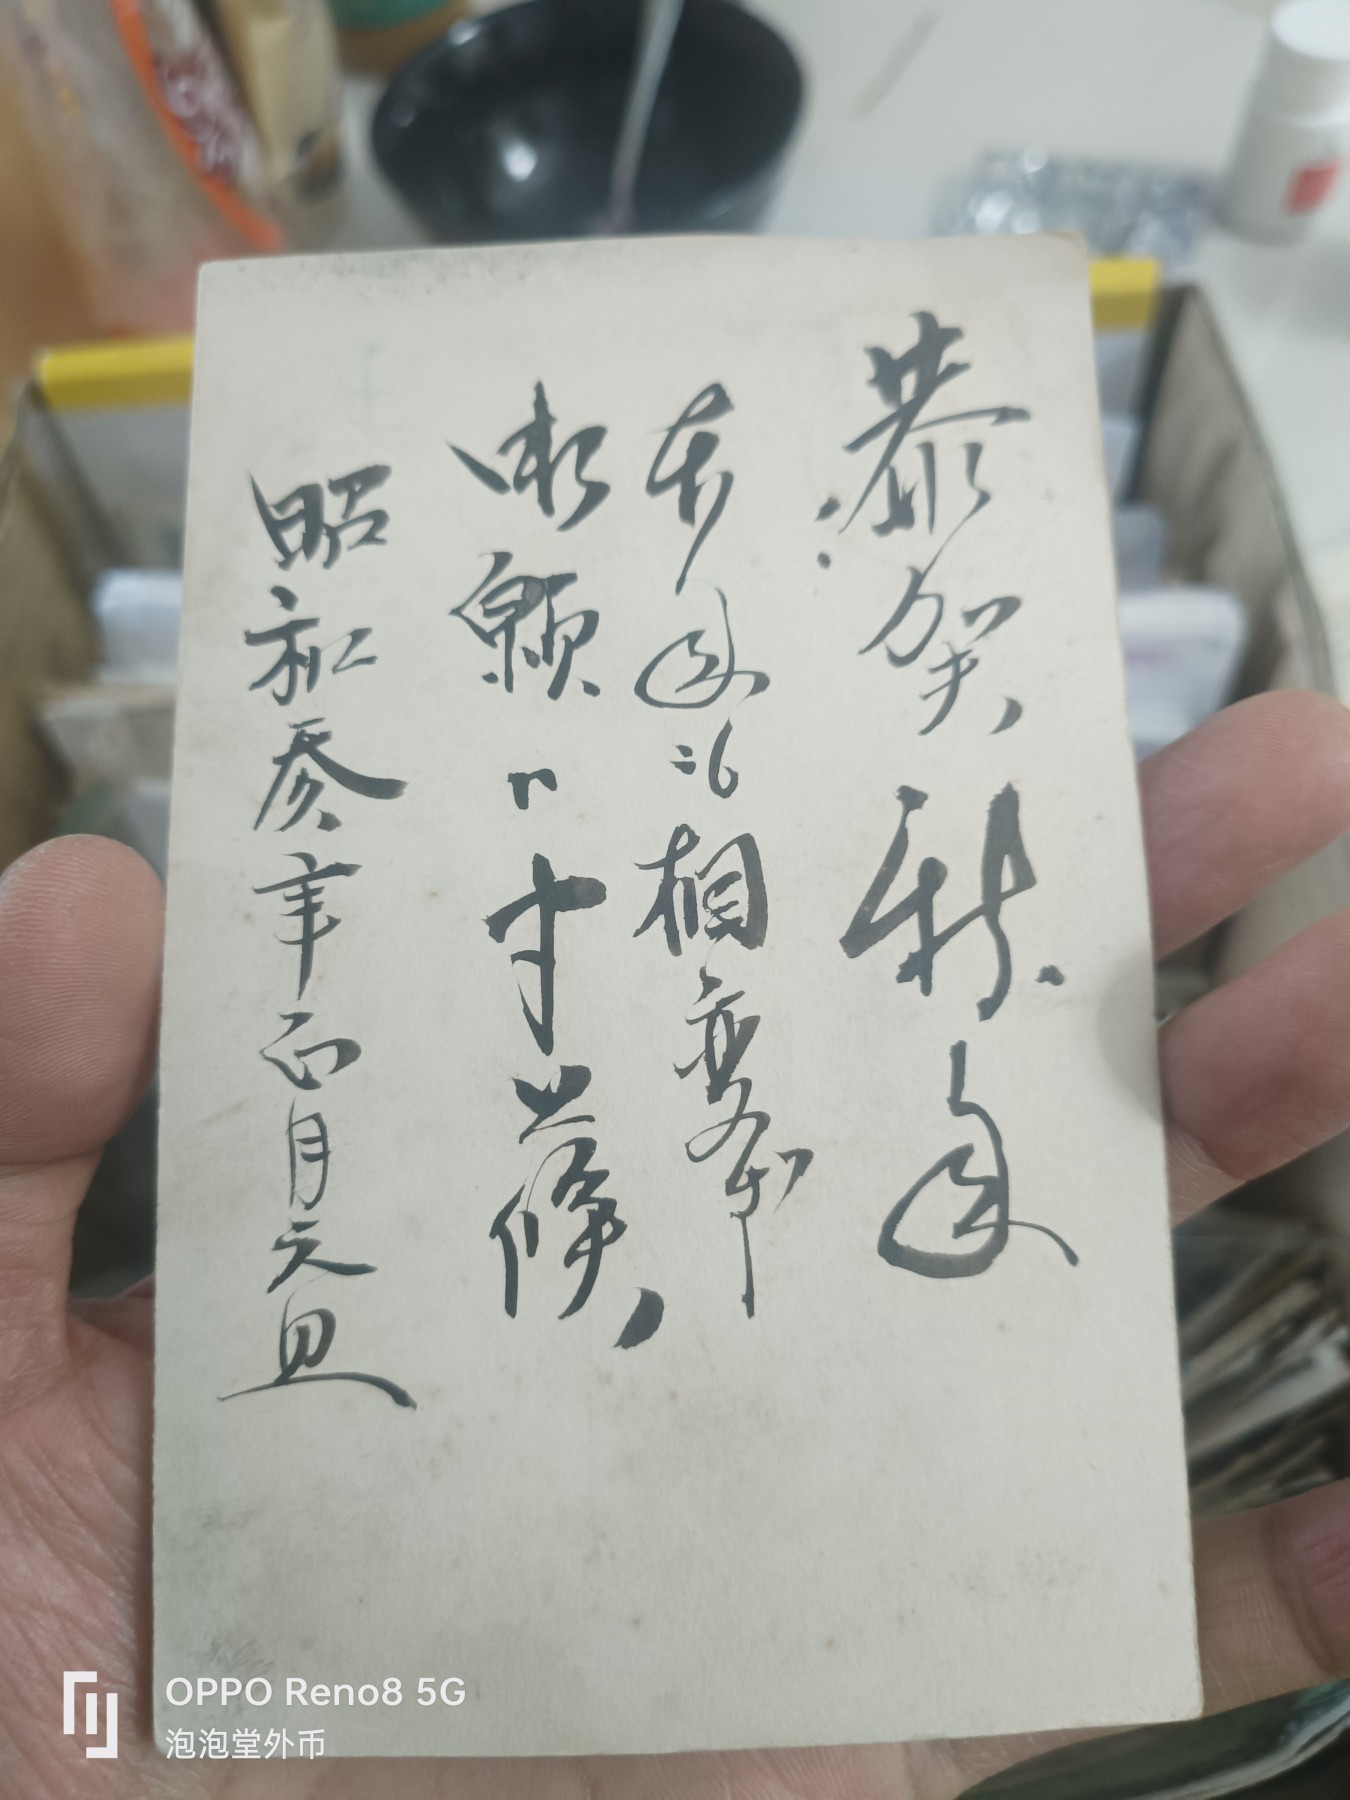 恭賀新年
本年も相変不
御願申上候
昭和参年正月元旦
OPPO Reno8 5G
泡泡堂外币